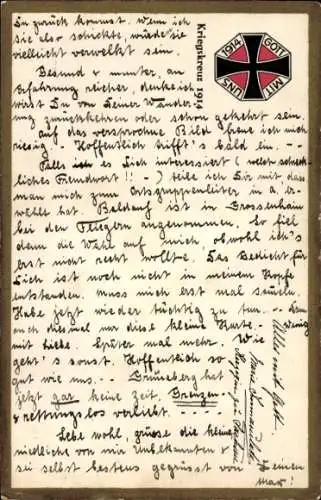 Du zurück kommst. Wenn ich
sie also schickte, würde sie
vielleicht verwelkt sein.
Gesund & munter, an
Erfahrung reicher, denke ich
wirst Du von Deiner Wander
ung zurückkehren oder schon gekehrt sein.
Auf das versprochne Bild freue ich mich
riesig! Hoffentlich trifft's bald ein. --
Falls ich es Dich interessiert (welch schreck-
liches Fremdwort!! -) teile ich Dir mit dass
man mich zum Ortsgruppenleiter in a. er-
wählt hat. Baldauf ist in Grossenhain
bei den Fliegern angenommen. So fiel
denn die Wahl auf mich, obwohl ich's
erst nicht recht wollte. Das Gedicht für
Dich ist noch nicht in meinem Kopfe
entstanden. Muss mich erst mal
Habe jetzt wieder tüchtig zu tun. -- dann
auch diesmal nur diese kleine Karte. - Wenig
mit Liebe. Später mal mehr. Wie
geht's sonst. Hoffentlich so
gut wie uns. -- Grüneberg hat
jetzt gar keine Zeit. Grenzen-
& rettungslos verliebt. --
Lebe wohl, grüsse die kleinen
niedlichen von mir Unbekannten &
sei selbst bestens gegrüsst von
Deinem
Max!
Alles mit Gott.
Kriegskreuz 1914
1914
GOTT
MIT
UNS